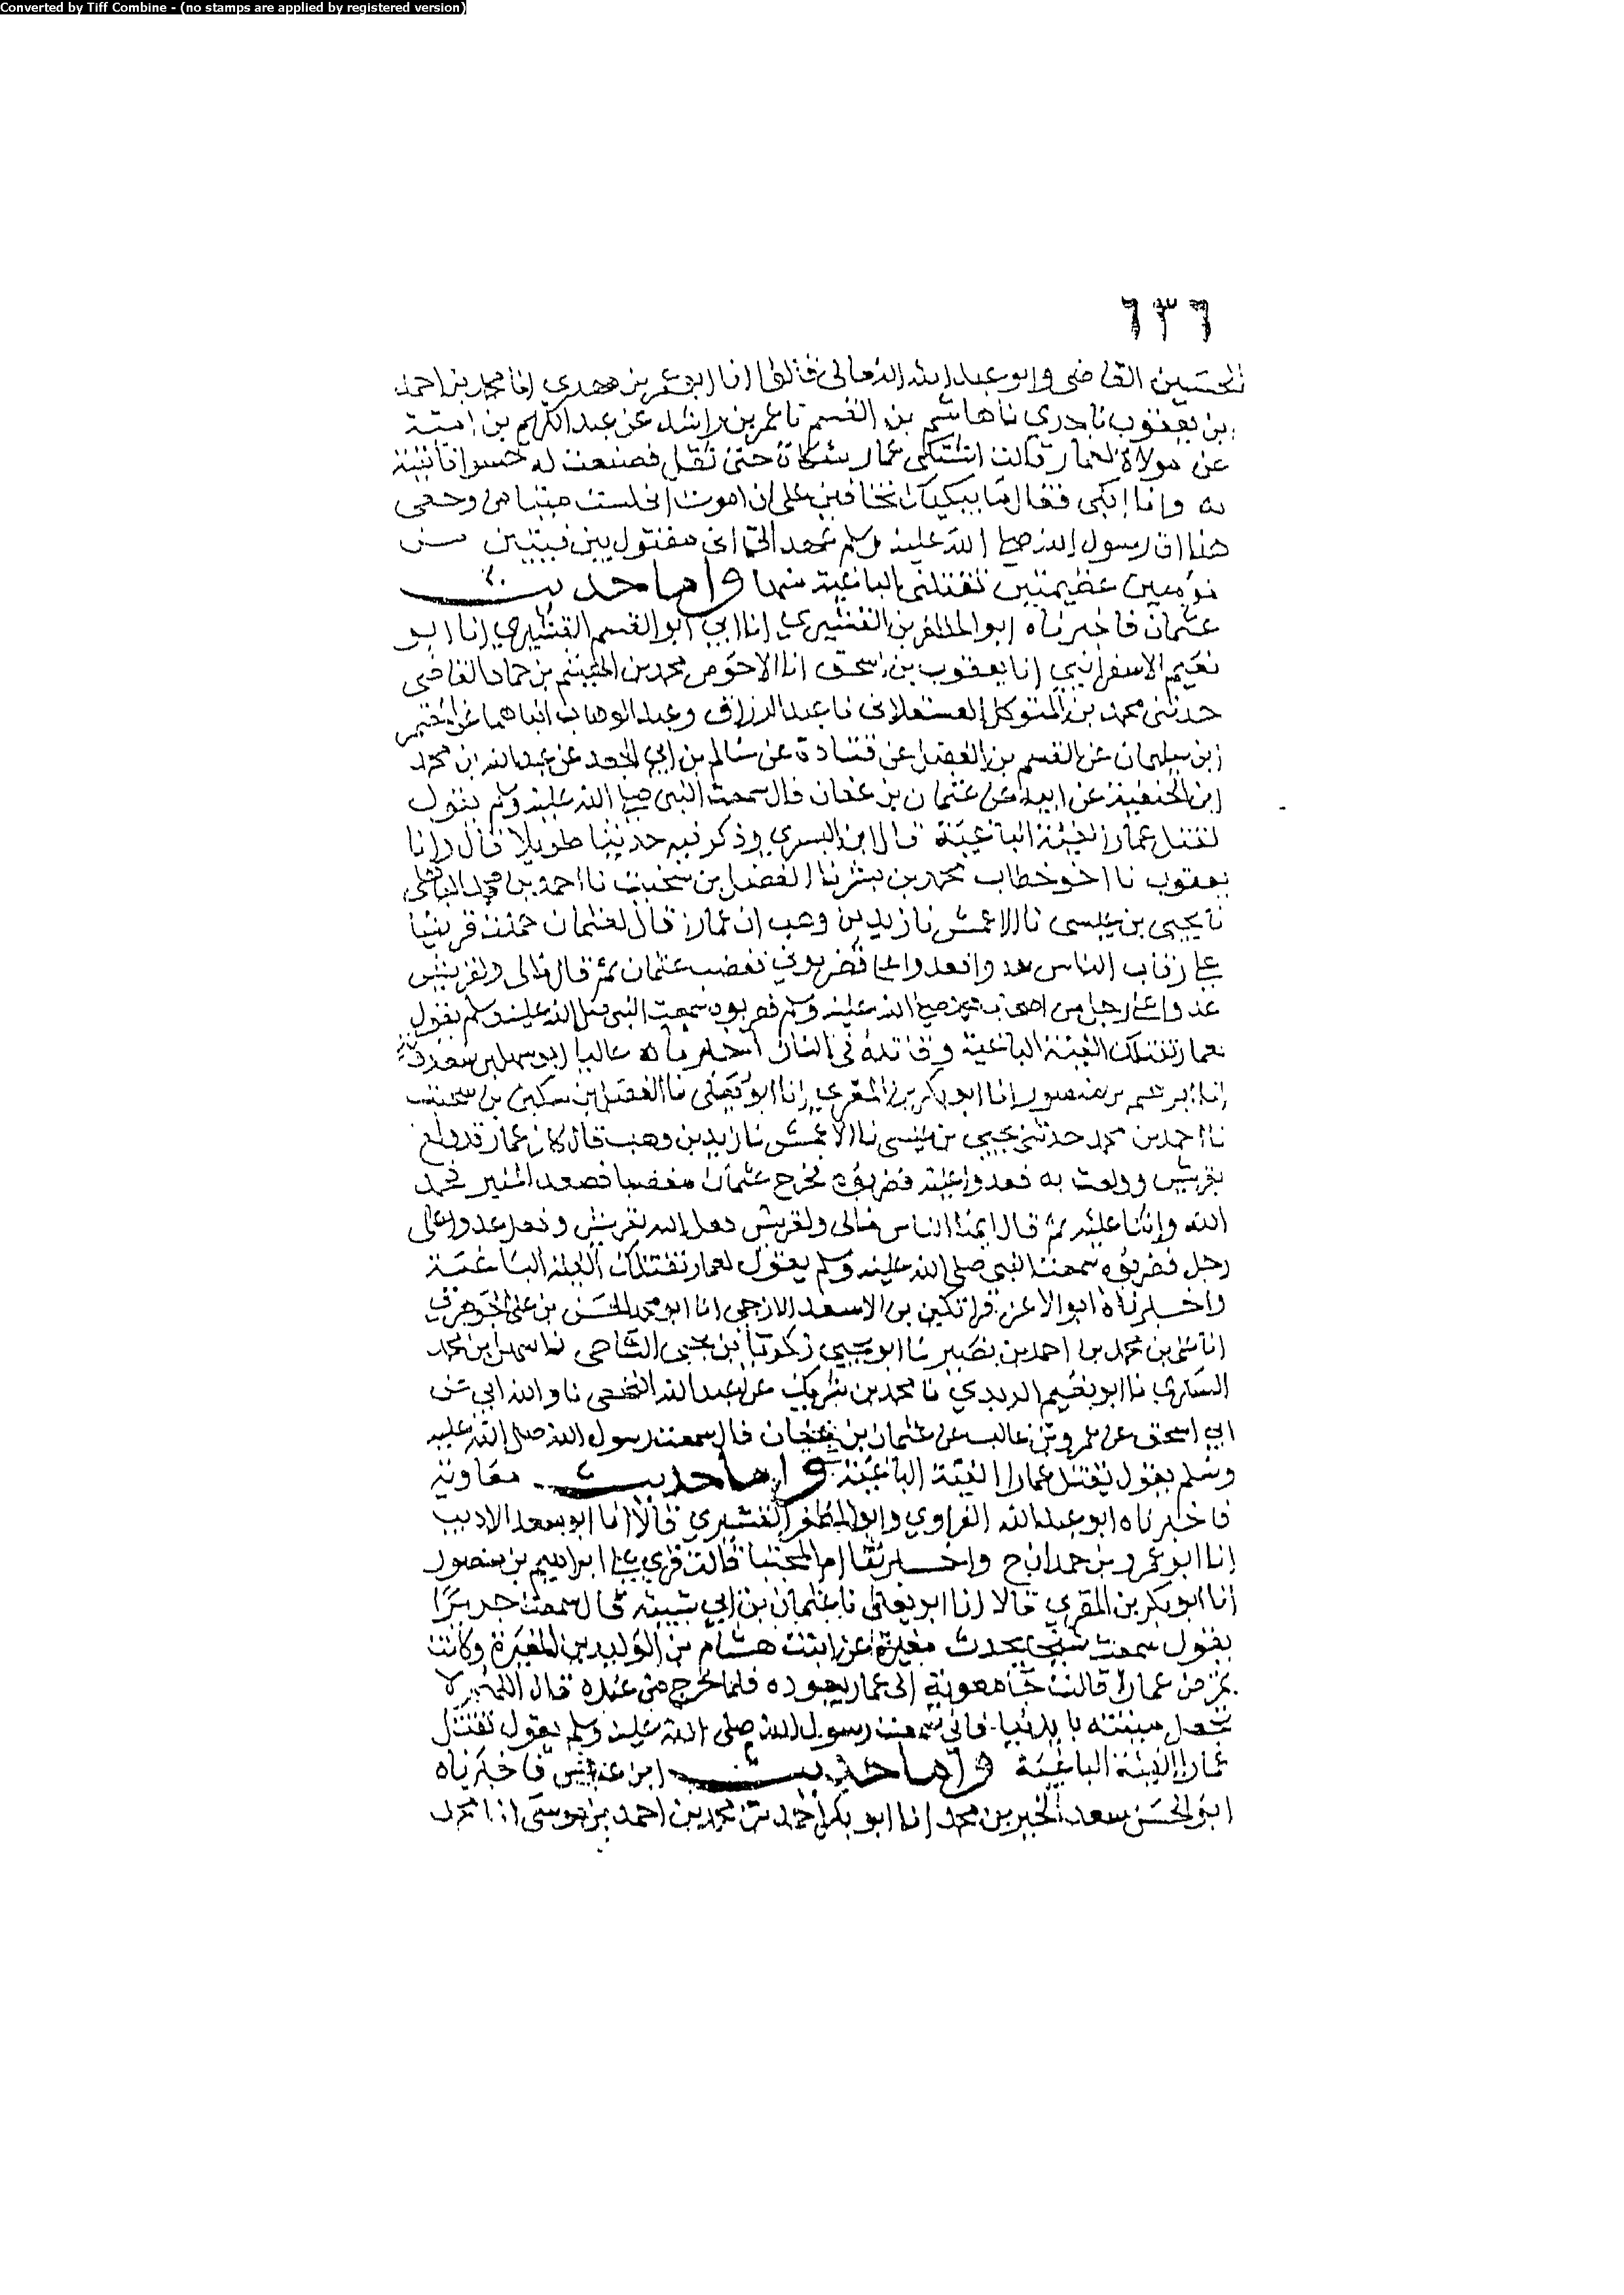 Converted by Tiff Combine - (no stamps are applied by registered version)
٦٣٦
الحسين القاضي وابو عبد الله قالوا انا ابو عمر بن مهدي انا محمد بن احمد
بن يعقوب نا جدي نا هاشم بن القسم نا عمر بن راشد عن عبد الكريم بن امية
عن مولاة لعمار قالت اشتكى عمار شكاة حتى ثقل فصنعت له حسوا فاتيته
به وانا ابكي فقال ما يبكيك تخافين على ان اموت اني لست ميتا من وجعي
هذا ان رسول الله صلى الله عليه وسلم عهد الي اني مقتول بين فئتين من
مؤمنين عظيمتين تقتلني الباغية منهما واما حديث
عثمان فاخبرناه ابو المظفر بن القشيري انا ابي ابو القسم القشيري انا ابو
نعيم الاسفرايني انا يعقوب بن اسحق انا الاحوص محمد بن الهيثم بن حماد القاضي
حدثني محمد بن المتوكل العسقلاني نا عبد الرزاق وعبد الوهاب انباهما عن معتمر
ابن سليمان عن القسم بن الفضل عن قتادة عن سالم بن ابي الجعد عن عبد الله ابن محمد
ابن الحنفية عن ابيه عن عثمان بن عفان قال سمعت النبي صلى الله عليه وسلم يقول
تقتل عمارا الفئة الباغية قال ابن السري وذكر فيه حديثا طويلا قال وانا
يعقوب نا اخو خطاب محمد بن بشر نا الفضل بن سخيت نا احمد بن محمد
نا يحيى بن عيسى نا الاعمش نا زيد بن وهب ان عمارا قال لعثمان حملت قريشا
على رقاب الناس فعدوا علي فضربوني فغضب عثمان ثم قال مالي ولقريش
عدوا على رجل من اصحاب محمد صلى الله عليه وسلم فضربوه سمعت النبي صلى الله عليه وسلم يقول
لعمار تقتلك الفئة الباغية وقاتله في النار اخبرناه عاليا ابو سهل بن سعدويه
انا ابراهيم بن منصور انا ابو بكر بن المقري انا ابو يعلى نا الفضل بن سكين بن سخيت
نا احمد بن محمد حدثني يحيى بن عيسى نا الاعمش نا زيد بن وهب قال كان عمار قد ولع
بقريش وولعت به فعدوا عليه فضربوه فخرج عثمان مغضبا فصعد المنبر فحمد
الله واثنى عليه ثم قال ايها الناس مالي ولقريش فعل الله بقريش وفعل عدوا على
رجل فضربوه سمعت النبي صلى الله عليه وسلم يقول لعمار تقتلك الفئة الباغية
واخبرناه ابو الاعز قراتكين بن الاسعد الازجي انا ابو محمد الحسن بن علي الجوهري
انا علي بن محمد بن احمد بن نصير نا ابو يحيى زكريا بن يحيى الساجي نا سهل بن محمد
نا ابو نعيم نا محمد بن شريك عن عبد الله النخعي نا والله ابي عن
ابي اسحق عن عمرو بن غالب عن عثمان بن عفان قال سمعت رسول الله صلى الله عليه
وسلم يقول تقتل عمارا الفئة الباغية واما حديث معاوية
فاخبرناه ابو عبد الله الفراوي وابو المظفر القشيري قالا انا ابو سعد الاديب
انا ابو عمرو بن حمدان ح واخبرتنا ام المجتبا قالت قري على ابراهيم بن منصور
انا ابو بكر بن المقري قالا انا ابو يعلى نا عثمان بن ابي شيبة قال سمعت جريرا
يقول سمعت شيخا يحدث مغيرة عن ابنت هشام بن الوليد بن المغيرة وكانت
تمرض عمارا قالت جا معوية الى عمار يعوده فلما خرج من عنده قال اللهم لا
تجعل ميتته بايدينا فاني سمعت رسول الله صلى الله عليه وسلم يقول تقتل
عمارا الفئة الباغية واما حديث ابن عباس فاخبرناه
ابو الحسن سعد الخير بن محمد انا ابو بكر احمد بن محمد بن احمد بن موسى انا محمد